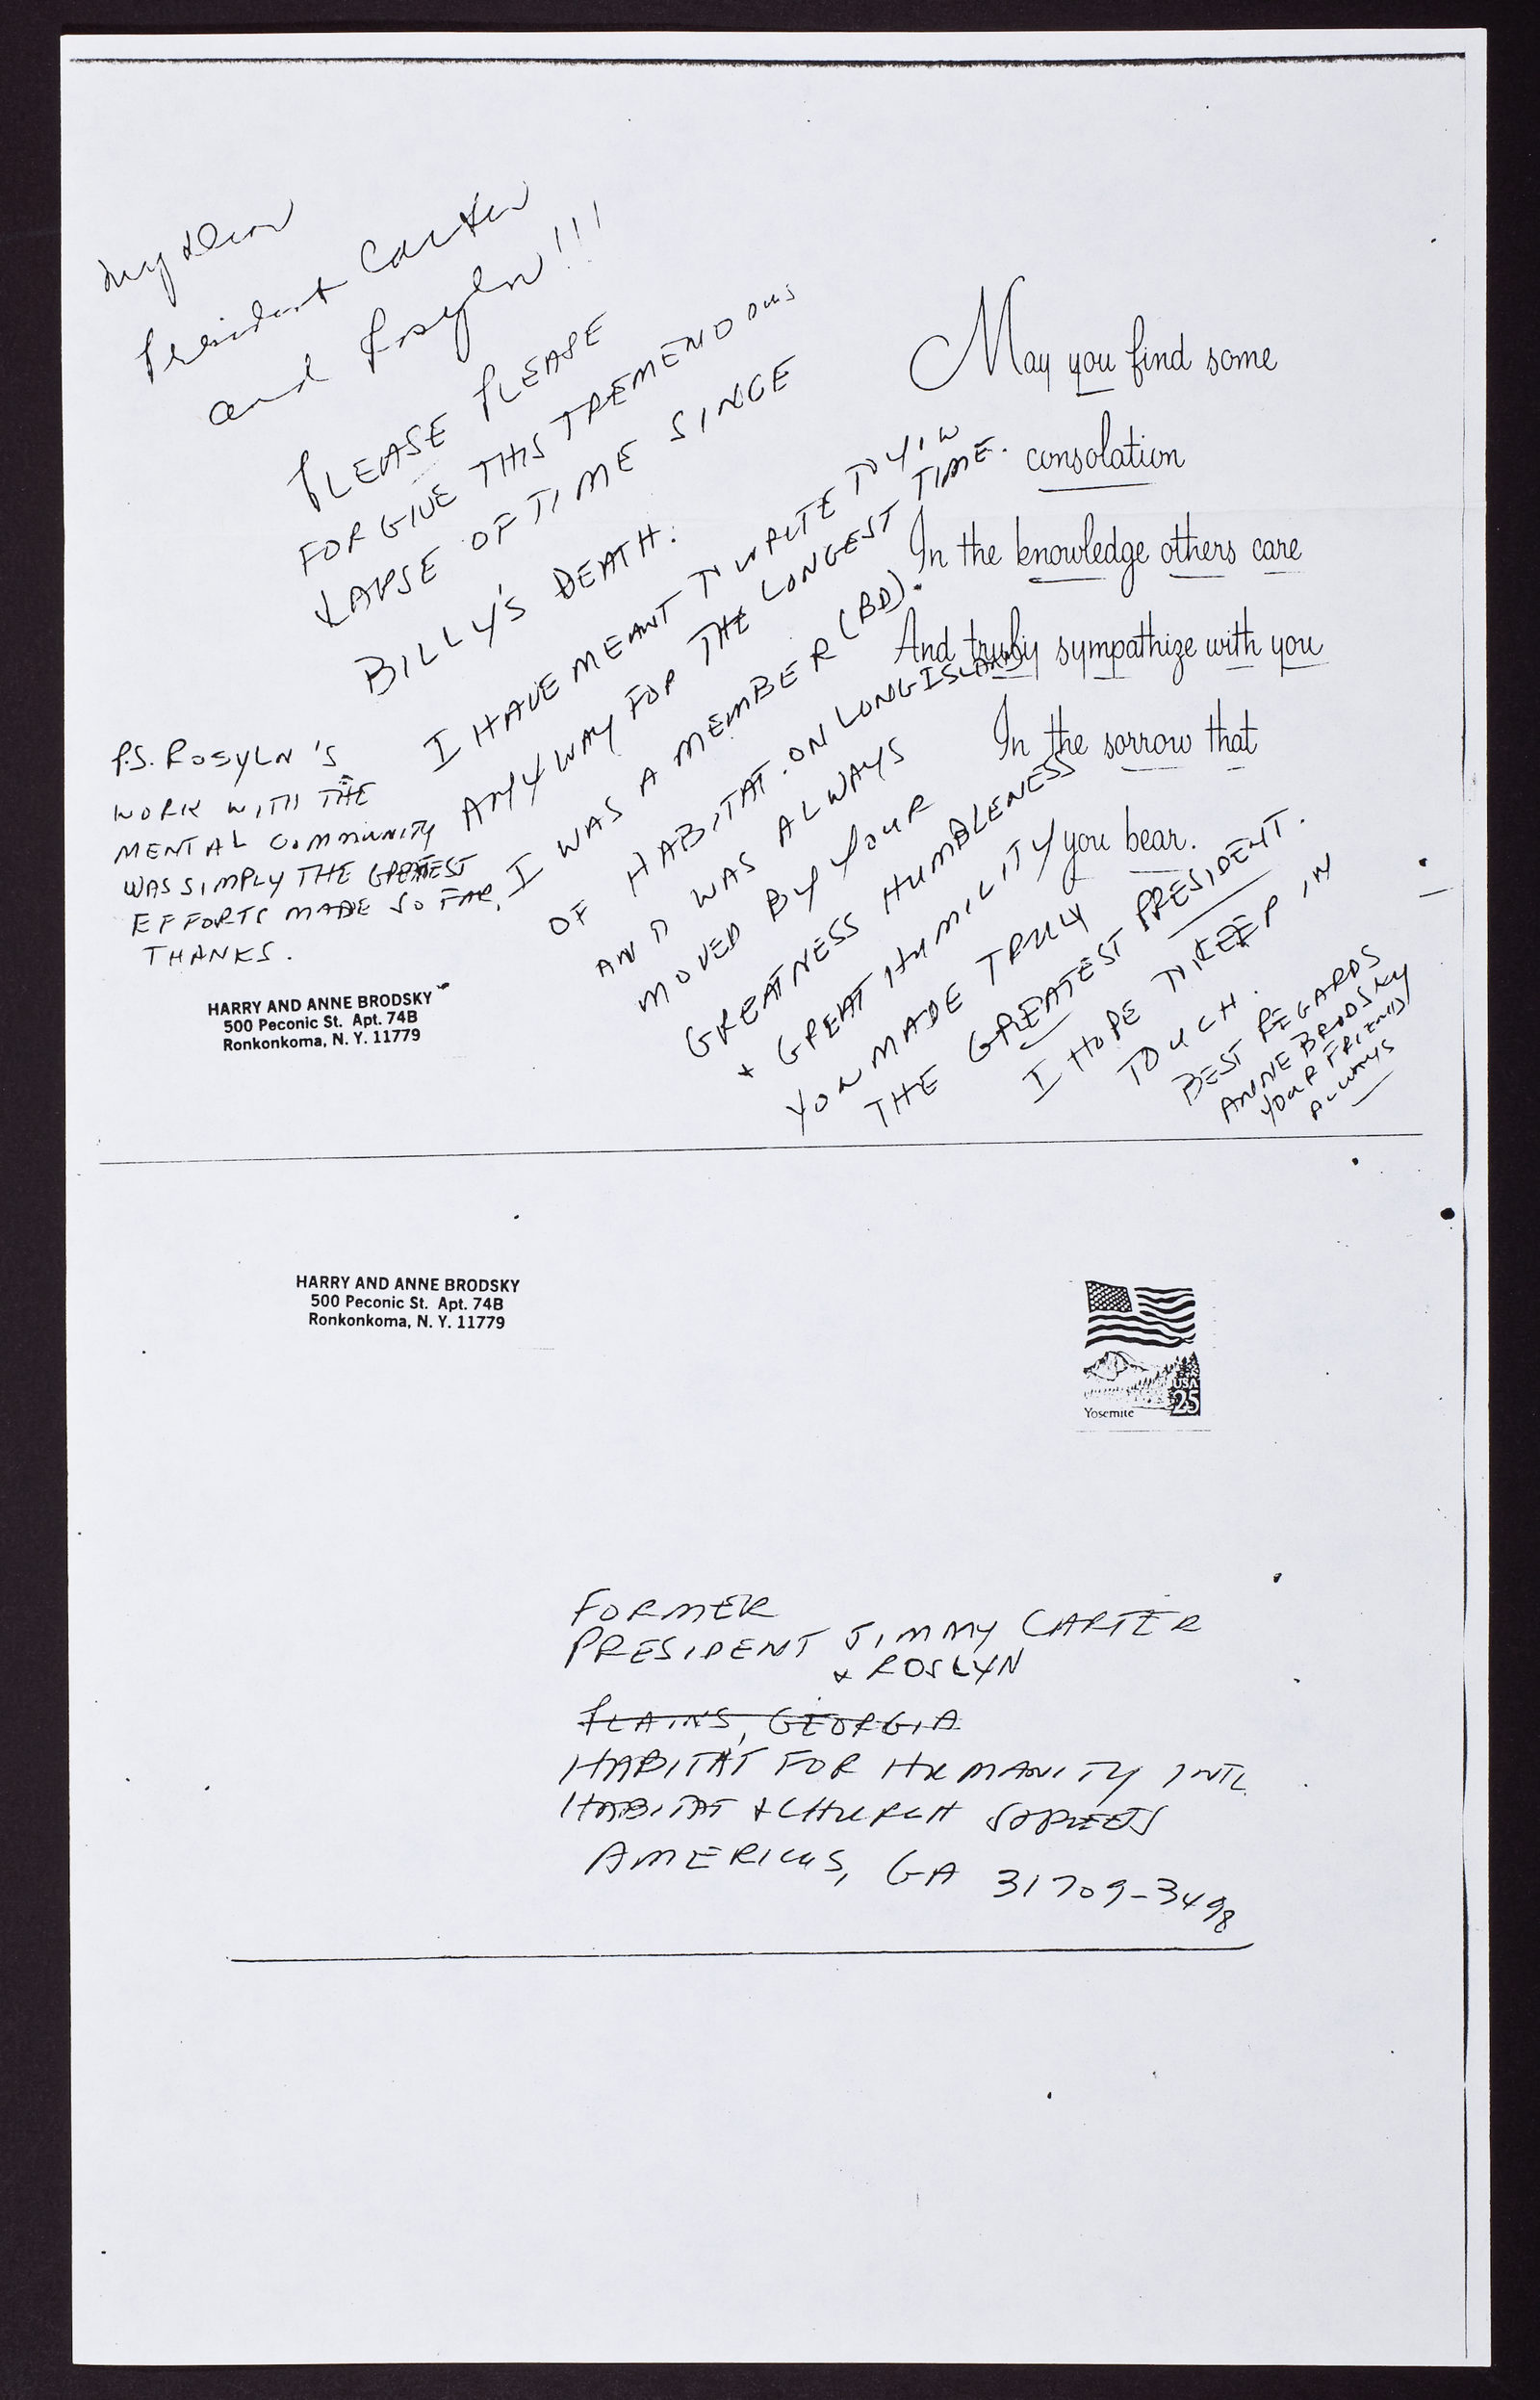 My dear
President Carter
and Rosyln!!!
PLEASE PLEASE
FORGIVE THIS TREMENDOUS
LAPSE OF TIME SINCE
BILLY'S DEATH.
I HAVE MEANT TO WRITE TO YOU
ANYWAY FOR THE LONGEST TIME.
I WAS A MEMBER (BD).
OF HABITAT. ON LONG ISLAND
AND WAS ALWAYS
MOVED BY YOUR
GREATNESS HUMBLENESS
+ GREAT HUMILITY
YOU MADE TRULY
THE GREATEST PRESIDENT.
I HOPE TO KEEP IN
TOUCH.
BEST REGARDS
ANNE BRODSKY
YOUR FRIEND
ALWAYS
P.S. ROSYLN'S
WORK WITH THE
MENTAL COMMUNITY
WAS SIMPLY THE GREATEST
EFFORTS MADE SO FAR.
THANKS.
HARRY AND ANNE BRODSKY
500 Peconic St. Apt. 74B
Ronkonkoma, N. Y. 11779
May you find some
consolation
In the knowledge others care
And truly sympathize with you
In the sorrow that
you bear.
HARRY AND ANNE BRODSKY
500 Peconic St. Apt. 74B
Ronkonkoma, N. Y. 11779
USA
25
Yosemite
FORMER
PRESIDENT JIMMY CARTER
+ ROSLYN
PLAINS, GEORGIA
HABITAT FOR HUMANITY INTL
HABITAT + CHURCH STREETS
AMERICUS, GA 31709-3498